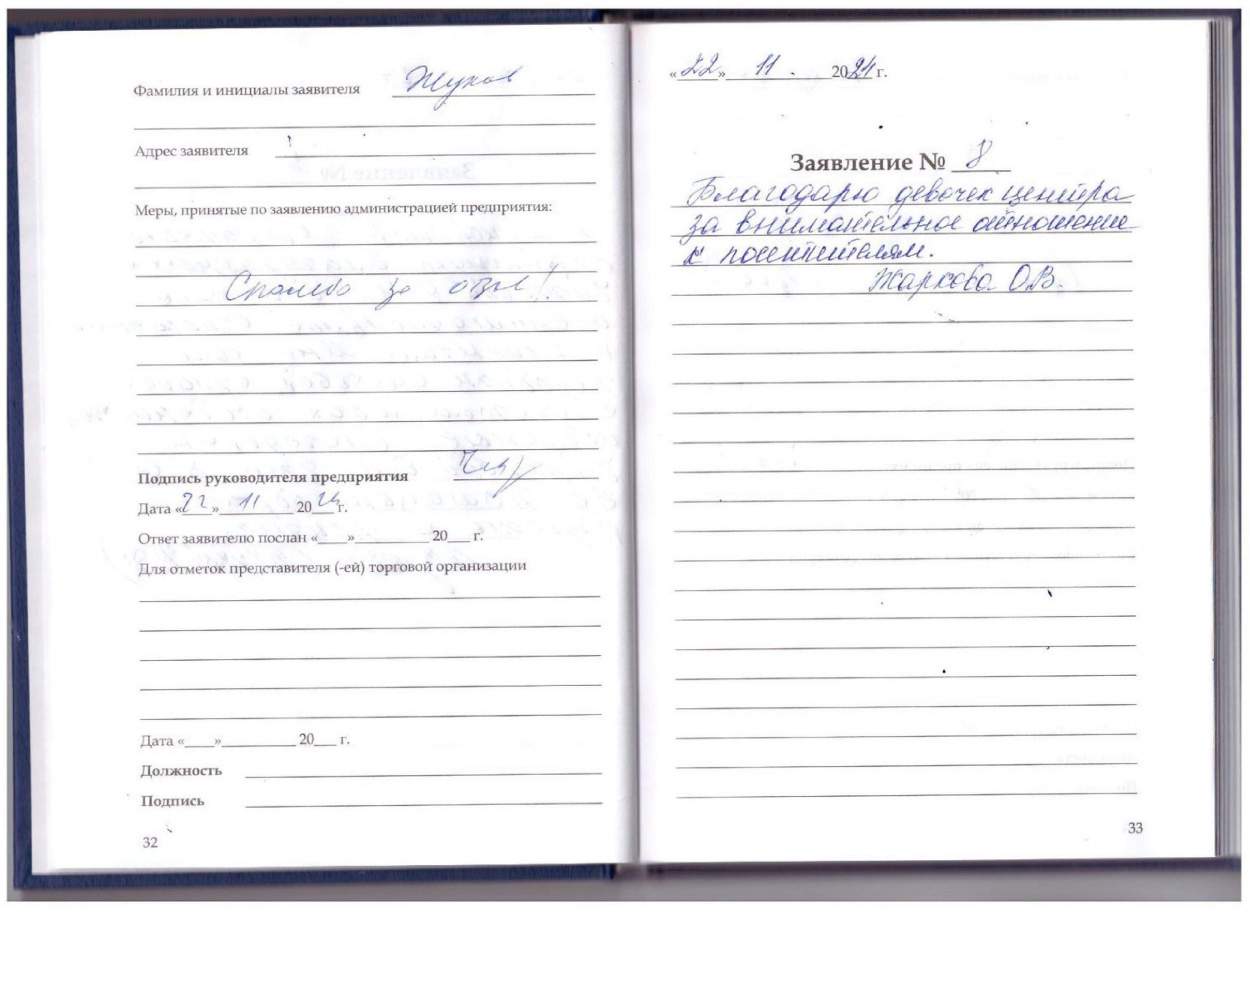 Фамилия и инициалы заявителя Жуков
Адрес заявителя
Меры, принятые по заявлению администрацией предприятия:
Спасибо за отзыв!
Подпись руководителя предприятия
Дата «22» 11 2024 г.
Ответ заявителю послан «___»__________ 20___ г.
Для отметок представителя (-ей) торговой организации
Дата «____»__________ 20___ г.
Должность
Подпись
32
«22» 11 . 2024 г.
Заявление № 8
Благодарю девочек центра
за внимательное отношение
к посетителям.
Жаркова О.В.
33